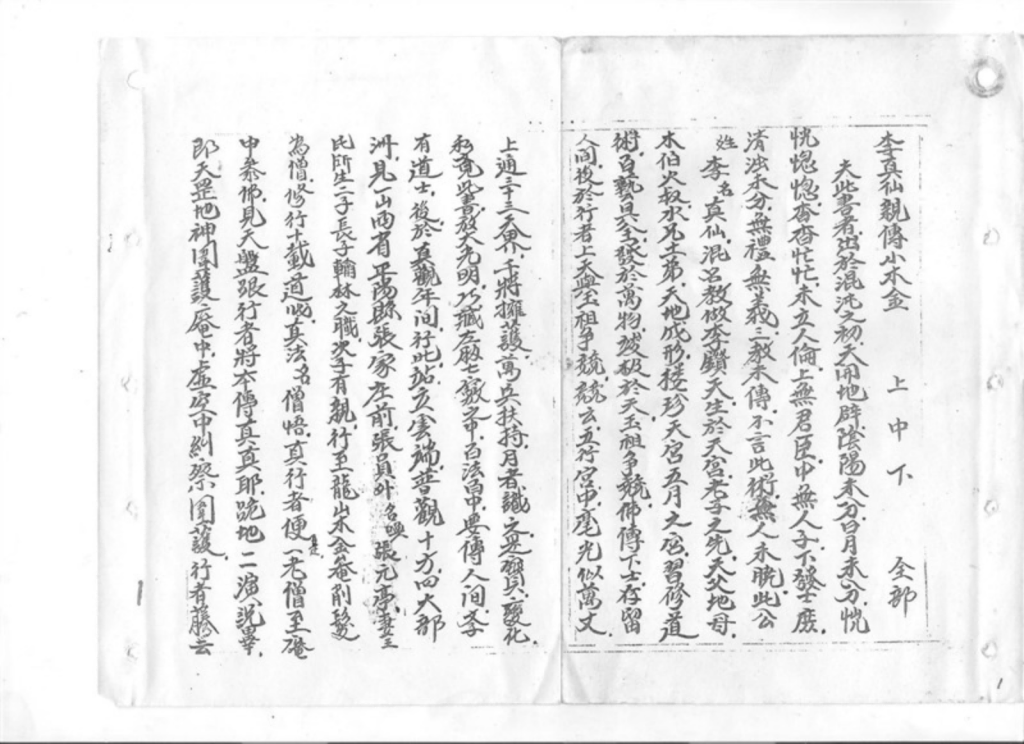 李真仙親傳小木金 上中下 全部
夫此書者出於混沌之初天開地辟陰陽未分日月未分恍
恍惚惚杳杳忙忙未立人倫上無君臣中無人子下發士庶
清濁未分無禮無義三教未傳不言此術無人未曉此公
姓李名真仙混名教做李鎖天生於天宮老子之先天父地母
木伯火叔水兄土弟天地成形授珍天宮五月之宮習修道
術召執具全發於萬物破於天玉祖爭競佛傳下士存留
人間後於行者上天與玉祖爭競競玄五符宮中毫光似萬丈
上通三十三天界千將擁護萬兵扶持月者讖之是寶貝變化
私竟此書放大光明乃藏之殷七嶽之中白法畜中與傳人間天子
有道士後於真觀年間行此站立雲端普觀十方四大部
洲見一山西有平陽縣張家庄前張員外名喚張元亨妻王
氏所生二子長子翰林之職次子有親行至龍山木金菴削髮
為僧修行截道吆真法名僧悟真行者便一老僧至菴
中參佛見天盤張行者將本傳真真耶跪地一一演說畢
即天罡地神圍護庵中虛空中糾察圍護行者藤云
1